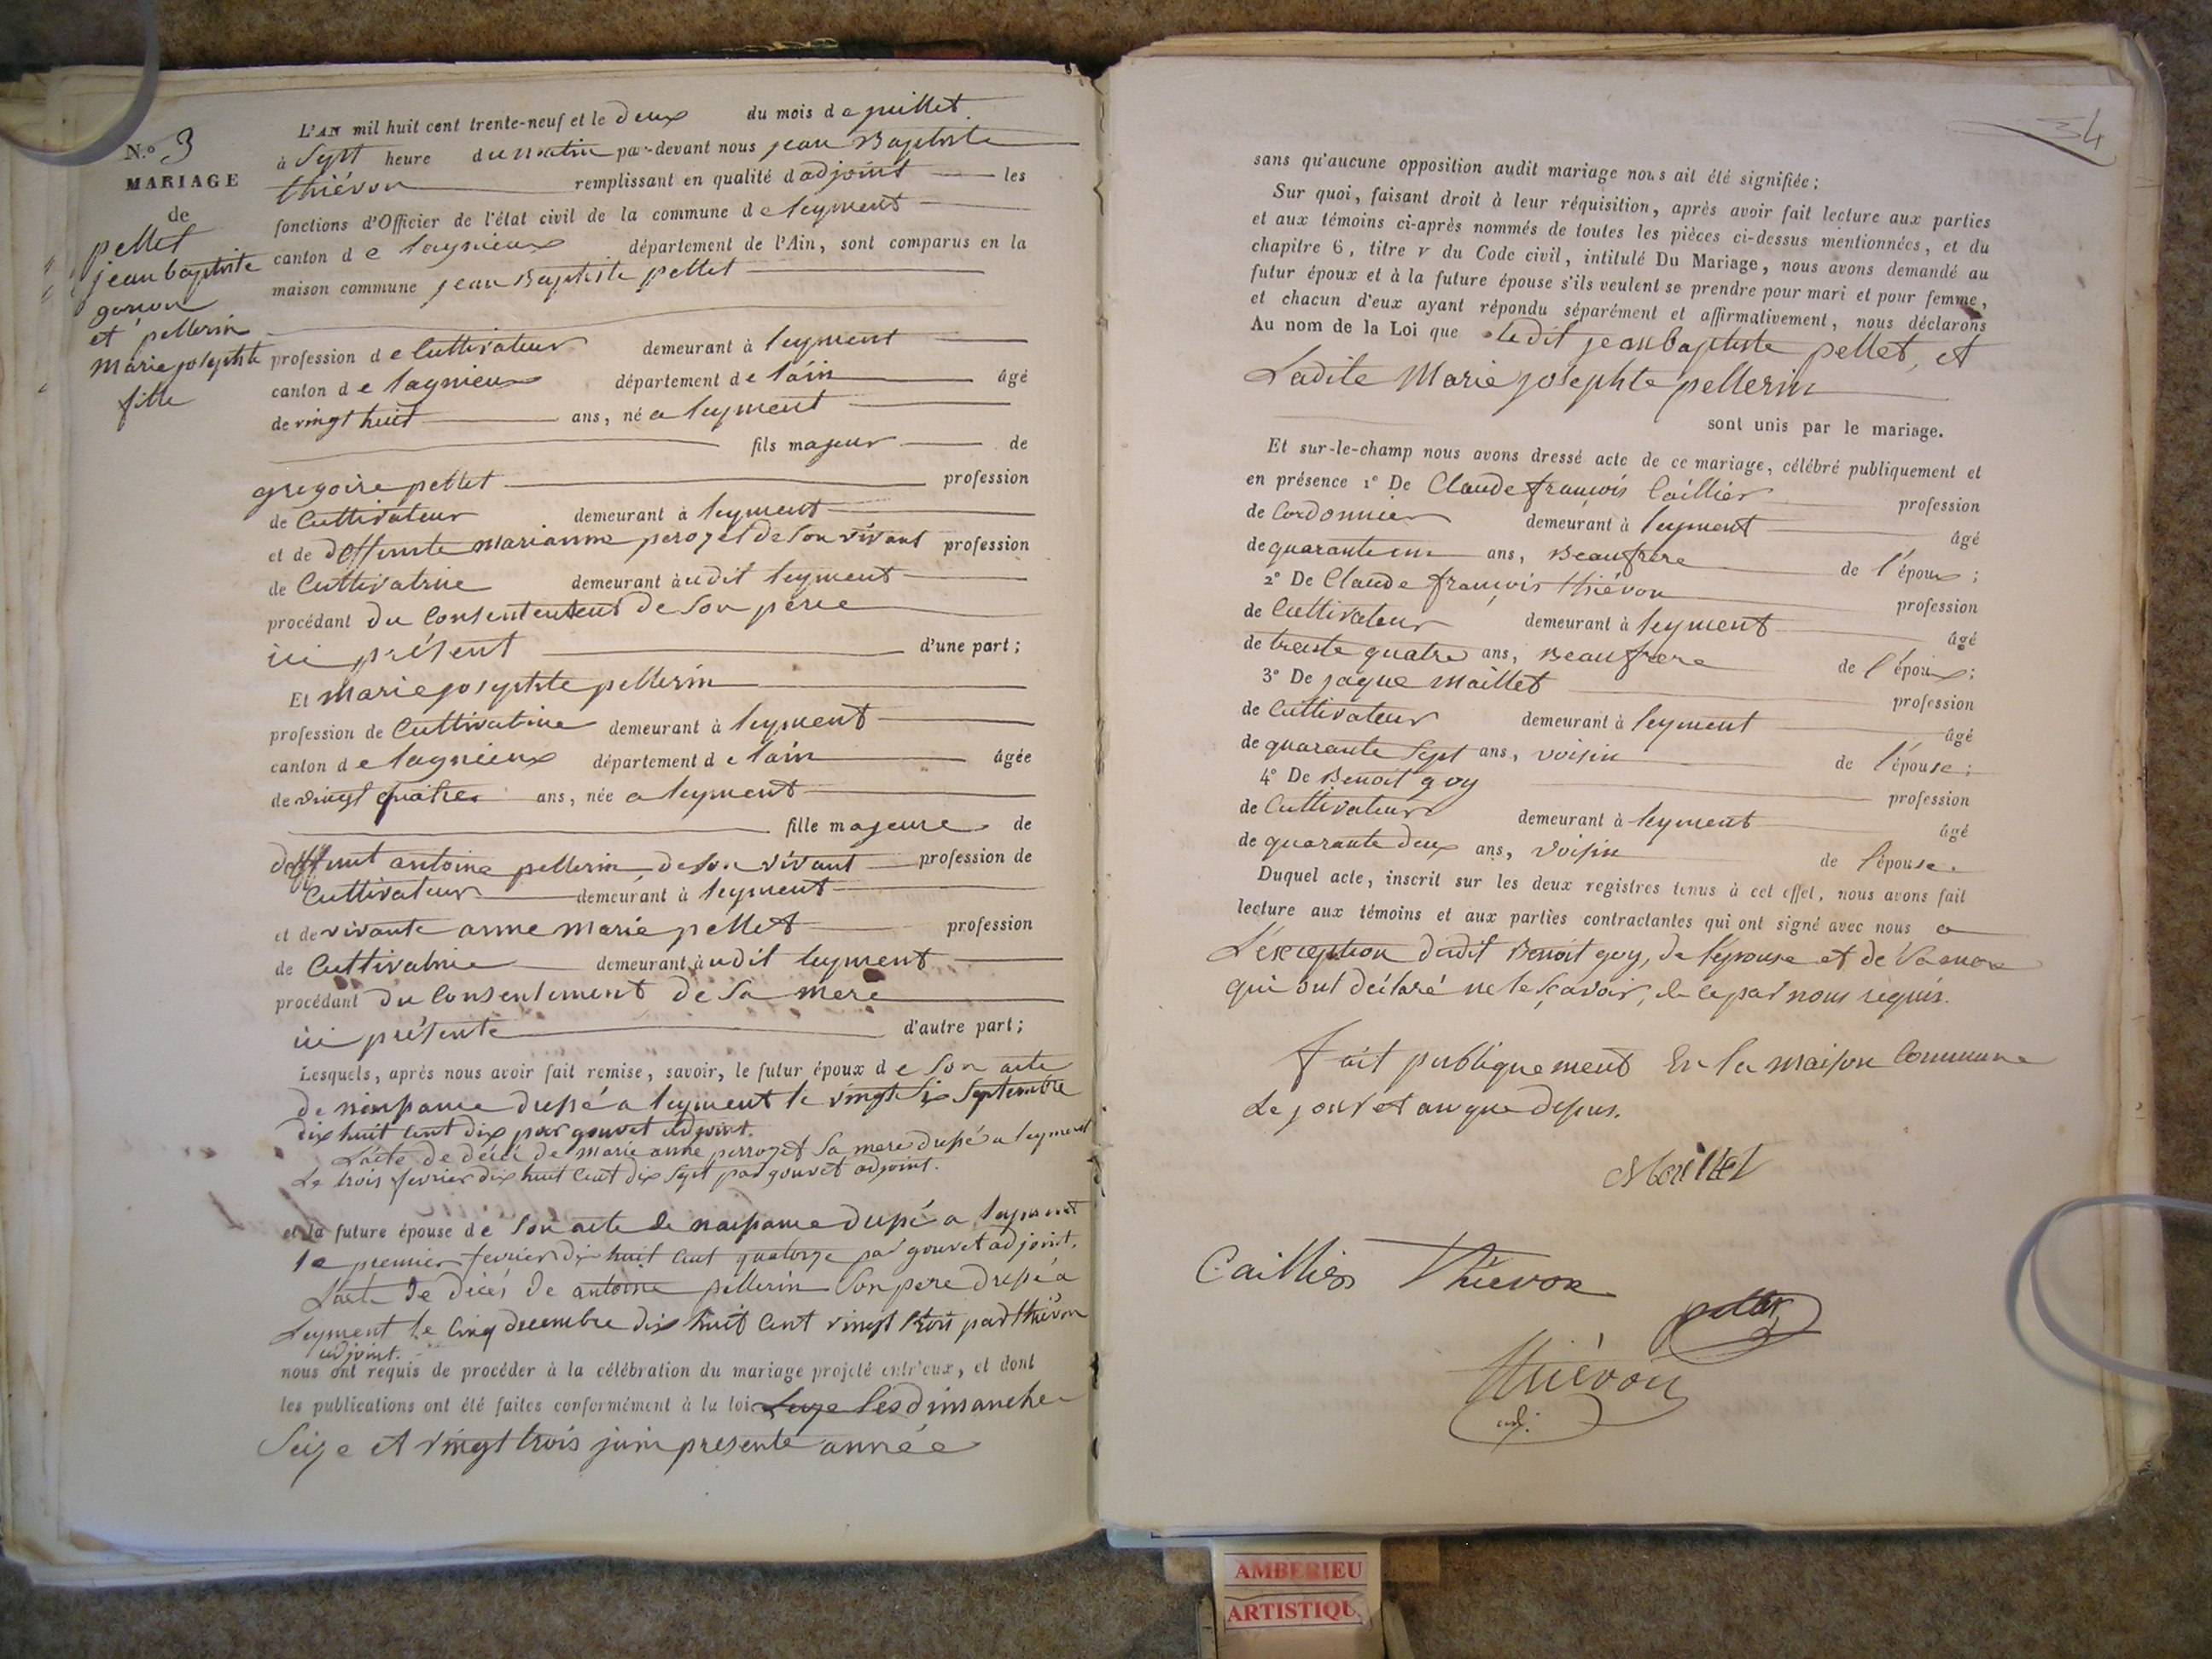 N.º 3
MARIAGE
de
pellet
jean baptiste
garcon
et pellerin
marie josephte
fille
L'AN mil huit cent trente-neuf et le deux du mois de juillet
à Sept heure du matin par-devant nous jean Baptiste
thiévon remplissant en qualité d'adjoint les
fonctions d'Officier de l'état civil de la commune de leyment
canton de lagnieux département de l'Ain, sont comparus en la
maison commune jean Baptiste pellet
profession de Cultivateur demeurant à leyment
canton de lagnieux département de lain âgé
de vingt huit ans, né a leyment
fils majeur de
gregoire pellet profession
de Cultivateur demeurant à leyment
et de deffunte marianne perozet de son vivant profession
de Cultivatrice demeurant audit leyment
procédant du Consentement de son pere
ici présent d'une part;
Et marie josephte pellerin
profession de Cultivatrice demeurant à leyment
canton de lagnieux département de lain âgée
de vingt quatre ans, née a leyment
fille majeure de
deffunt antoine pellerin de son vivant profession de
Cultivateur demeurant à leyment
et de vivante anne marie pellet profession
de Cultivatrice demeurant audit leyment
procédant du Consentement de sa mere
ici présente d'autre part;
Lesquels, après nous avoir fait remise, savoir, le futur époux de Son acte
de naissance dressé a leyment le vingt six Septembre
dix huit cent dix par gouvet adjoint.
L'acte de décè de marie anne perrozet sa mere dressé a leyment
Le trois fevrier dix huit Cent dix sept par gouvet adjoint.
et la future épouse de son acte de naissance dressé a leyment
le premier fevrier dix huit cent quatorze par gouvet adjoint.
L'acte de décés de antoine pellerin son pere dressé a
Leyment le Cinq decembre dix huit cent vingt trois par thiévon
adjoint.
nous ont requis de procéder à la célébration du mariage projeté entr'eux, et dont
les publications ont été faites conformément à la loi les dimanche
Seize et vingt trois juin presente année
34
sans qu'aucune opposition audit mariage nous ait été signifiée;
Sur quoi, faisant droit à leur réquisition, après avoir fait lecture aux parties
et aux témoins ci-après nommés de toutes les pièces ci-dessus mentionnées, et du
chapitre 6, titre v du Code civil, intitulé Du Mariage, nous avons demandé au
futur époux et à la future épouse s'ils veulent se prendre pour mari et pour femme,
et chacun d'eux ayant répondu séparément et affirmativement, nous déclarons
Au nom de la Loi que Ledit jean baptiste pellet, et
Ladite Marie josephte pellerin
sont unis par le mariage.
Et sur-le-champ nous avons dressé acte de ce mariage, célébré publiquement et
en présence 1º De Claude françois Caillier profession
de Cordonnier demeurant à leyment âgé
de quarante un ans, Beaufrere de l'époux;
2º De Claude françois thiévon profession
de Cultivateur demeurant à leyment âgé
de trente quatre ans, Beaufrere de l'époux;
3º De jaque Maillet profession
de Cultivateur demeurant à leyment âgé
de quarante Sept ans, voisin de l'épouse;
4º De Benoit goy profession
de Cultivateur demeurant à leyment âgé
de quarante deux ans, voisin de l'épouse.
Duquel acte, inscrit sur les deux registres tenus à cet effet, nous avons fait
lecture aux témoins et aux parties contractantes qui ont signé avec nous a
L'exception dudit Benoit goy, de l'épouse et de sa mere
qui ont déclaré ne le sçavoir, de ce par nous requis.
fait publiquement En la maison Commune
Le jour et an que dessus.
Maillet
Caillier Thievon
pellet
thiévon
adj.
AMBERIEU
ARTISTIQU